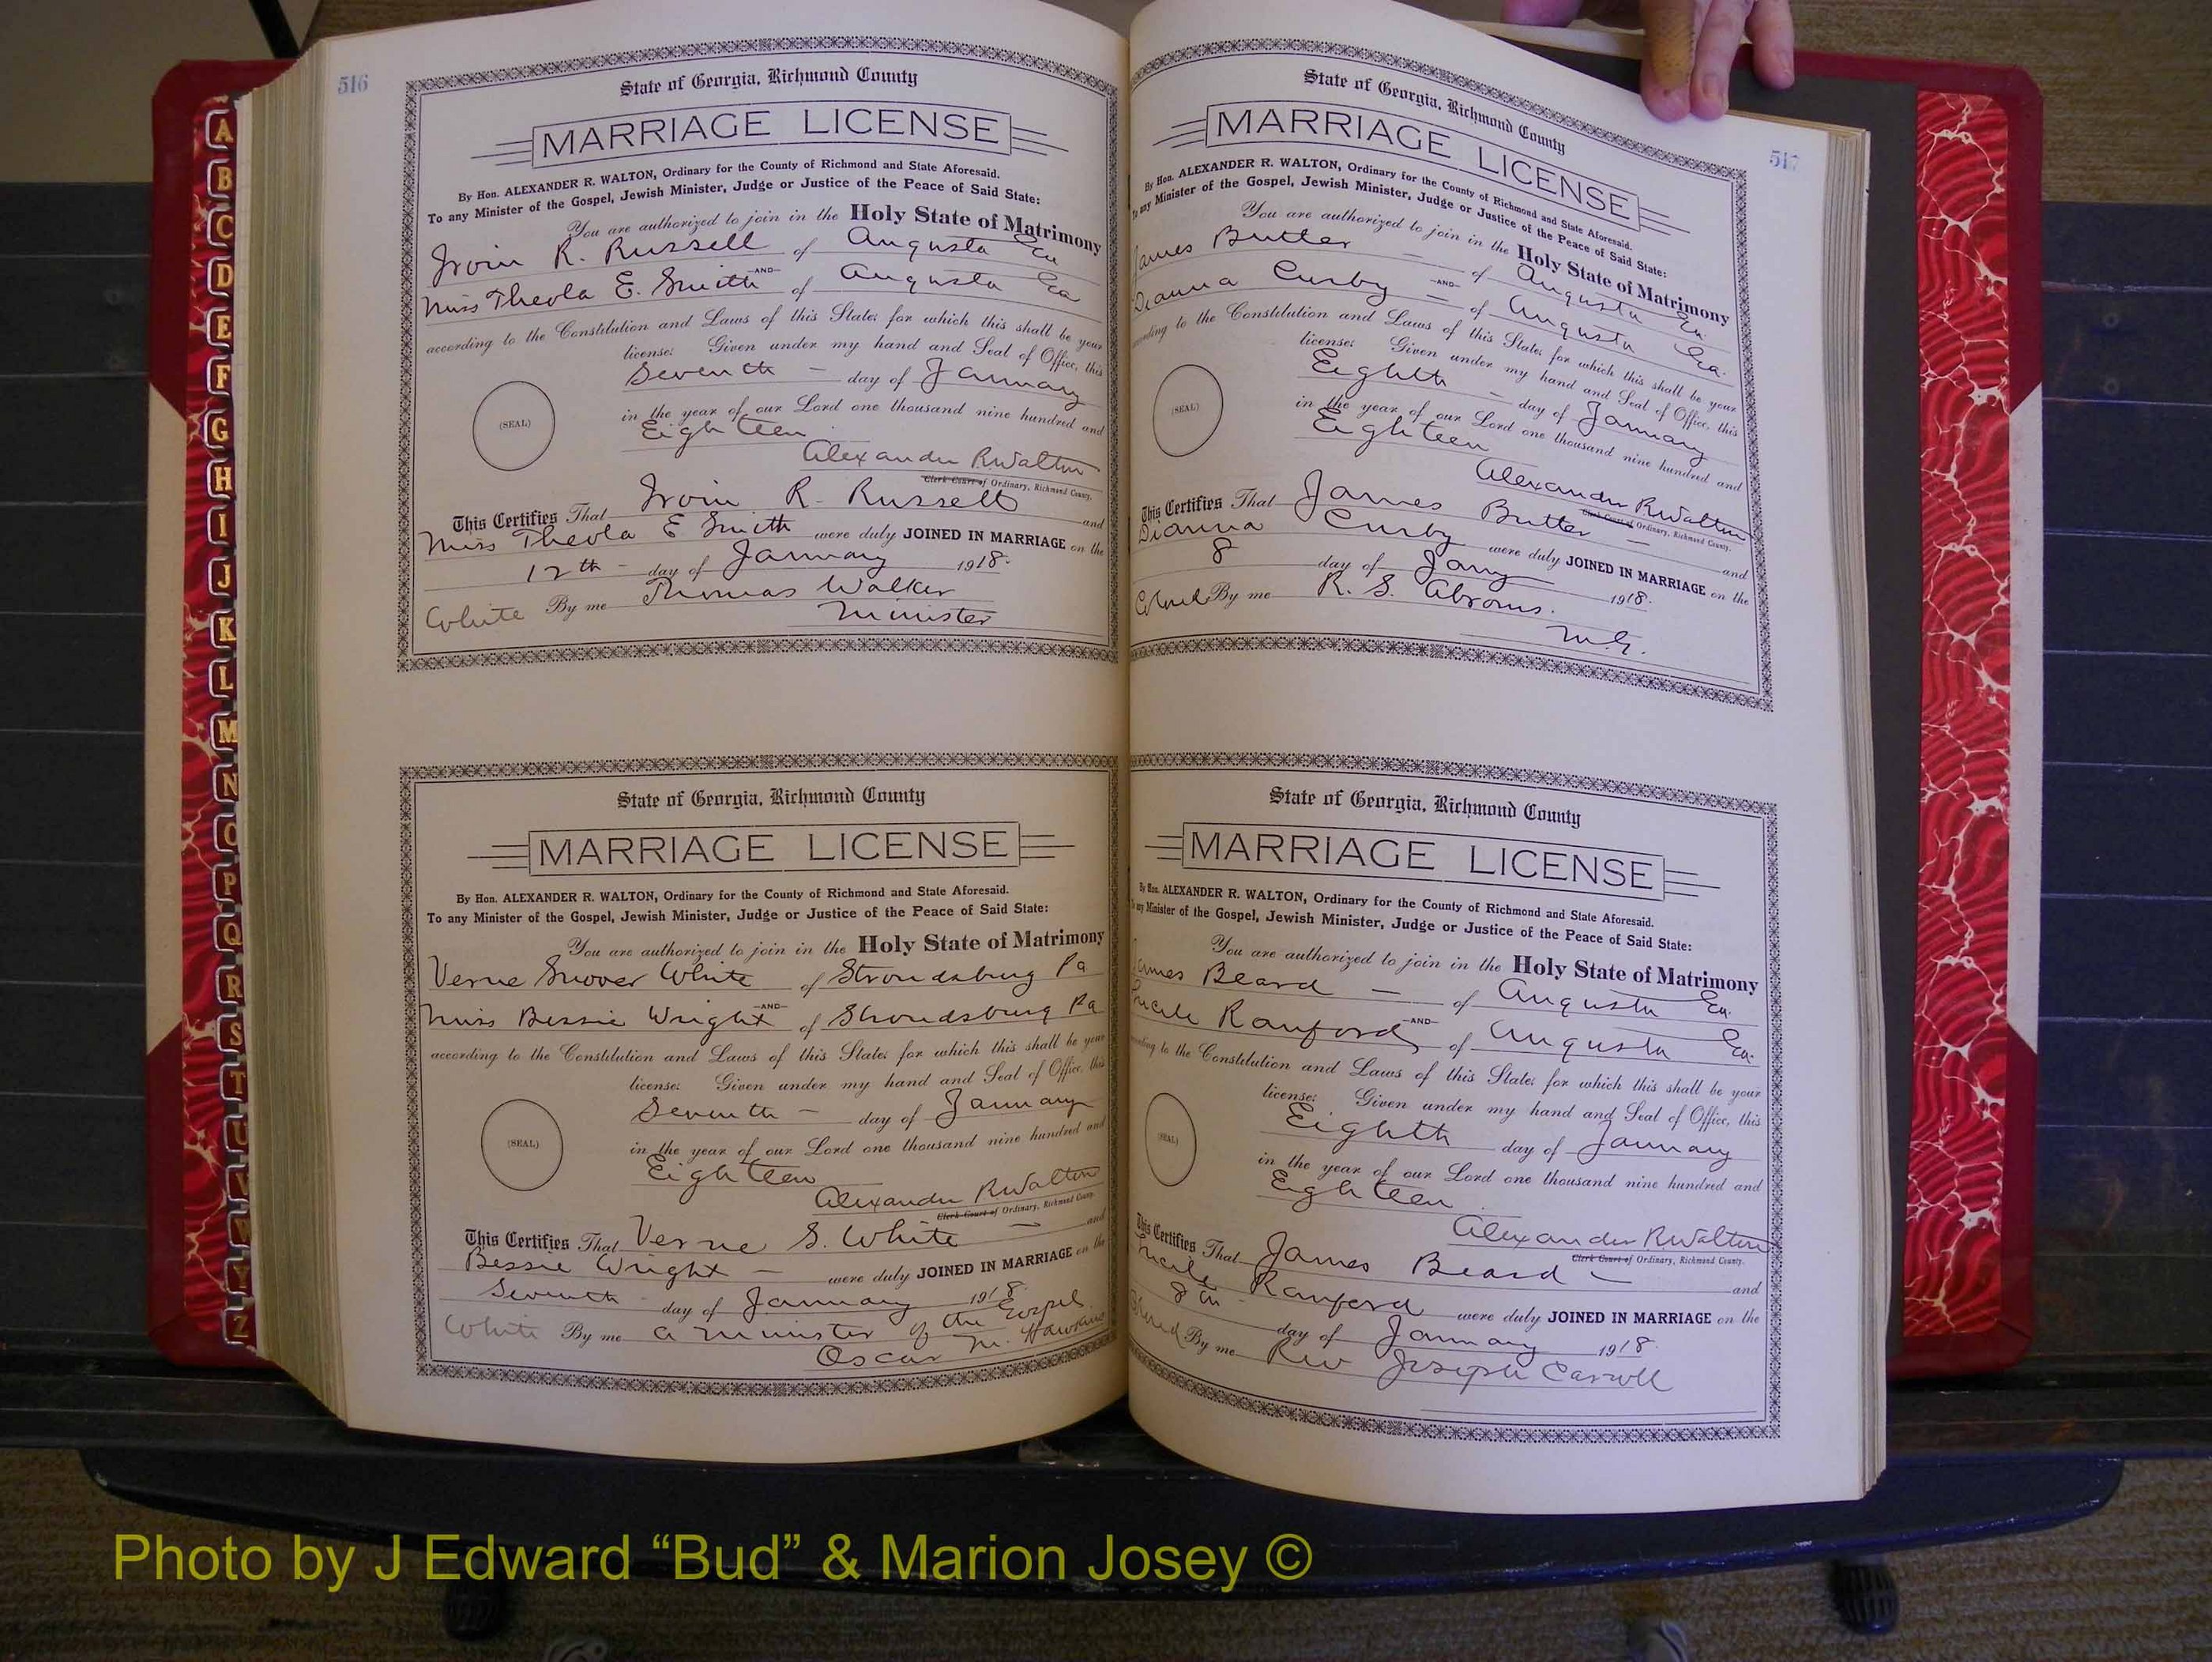 516
State of Georgia, Richmond County
MARRIAGE LICENSE
By Hon. ALEXANDER R. WALTON, Ordinary for the County of Richmond and State Aforesaid.
To any Minister of the Gospel, Jewish Minister, Judge or Justice of the Peace of Said State:
You are authorized to join in the Holy State of Matrimony
Irvin R. Russell of Augusta Ga
AND
Miss Theola E. Smith of Augusta Ga
according to the Constitution and Laws of this State; for which this shall be your
license: Given under my hand and Seal of Office, this
Seventh - day of January
(SEAL)
in the year of our Lord one thousand nine hundred and
Eighteen
Alexander R Walton
Clerk Court of Ordinary, Richmond County.
This Certifies That Irvin R. Russell and
Miss Theola E Smith were duly JOINED IN MARRIAGE on the
12th - day of January 1918.
White By me Thomas Walker
Minister
State of Georgia, Richmond County
MARRIAGE LICENSE
By Hon. ALEXANDER R. WALTON, Ordinary for the County of Richmond and State Aforesaid.
To any Minister of the Gospel, Jewish Minister, Judge or Justice of the Peace of Said State:
You are authorized to join in the Holy State of Matrimony
Verne Snover White of Stroudsburg Pa
AND
Miss Bessie Wright of Stroudsburg Pa
according to the Constitution and Laws of this State; for which this shall be your
license: Given under my hand and Seal of Office, this
Seventh - day of January
(SEAL)
in the year of our Lord one thousand nine hundred and
Eighteen
Alexander R Walton
Clerk Court of Ordinary, Richmond County.
This Certifies That Verne S. White - and
Bessie Wright - were duly JOINED IN MARRIAGE on the
Seventh day of January 1918.
White By me a Minister of the Gospel
Oscar M. Hawkins
517
State of Georgia, Richmond County
MARRIAGE LICENSE
By Hon. ALEXANDER R. WALTON, Ordinary for the County of Richmond and State Aforesaid.
To any Minister of the Gospel, Jewish Minister, Judge or Justice of the Peace of Said State:
You are authorized to join in the Holy State of Matrimony
James Butler - of Augusta Ga.
AND
Dianna Curby - of Augusta Ga.
according to the Constitution and Laws of this State; for which this shall be your
license: Given under my hand and Seal of Office, this
Eighth - day of January
(SEAL)
in the year of our Lord one thousand nine hundred and
Eighteen
Alexander R Walton
Clerk Court of Ordinary, Richmond County.
This Certifies That James Butler - and
Dianna Curby were duly JOINED IN MARRIAGE on the
8 day of Jany 1918.
Colored By me R. S. Abrams.
M.G.
State of Georgia, Richmond County
MARRIAGE LICENSE
By Hon. ALEXANDER R. WALTON, Ordinary for the County of Richmond and State Aforesaid.
To any Minister of the Gospel, Jewish Minister, Judge or Justice of the Peace of Said State:
You are authorized to join in the Holy State of Matrimony
James Beard - of Augusta Ga.
AND
Lucile Ranford of Augusta Ga.
according to the Constitution and Laws of this State; for which this shall be your
license: Given under my hand and Seal of Office, this
Eighth day of January
(SEAL)
in the year of our Lord one thousand nine hundred and
Eighteen
Alexander R. Walton
Clerk Court of Ordinary, Richmond County.
This Certifies That James Beard - and
Lucile Ranford were duly JOINED IN MARRIAGE on the
8th day of January 1918.
Colored By me Rev Joseph Carroll
A
B
C
D
E
F
G
H
I
J
K
L
M
N
O
P
Q
R
S
T
U
V
W
Y
Z
Photo by J Edward “Bud” & Marion Josey ©